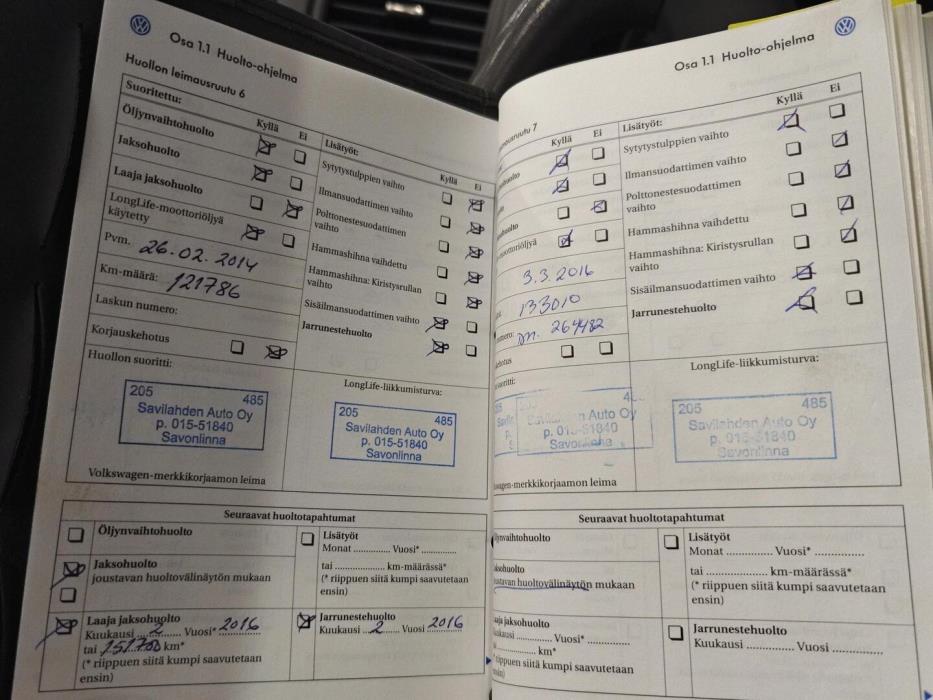 Osa 1.1 Huolto-ohjelma
Huollon leimausruutu 6
Suoritettu:
Kyllä Ei
Öljynvaihtohuolto
Jaksohuolto
Laaja jaksohuolto
LongLife-moottoriöljyä
käytetty
Pvm. 26.02.2014
Km-määrä: 121786
Laskun numero:
Korjauskehotus
Huollon suoritti:
205 485
Savilahden Auto Oy
p. 015-51840
Savonlinna
Volkswagen-merkkikorjaamon leima
Lisätyöt:
Kyllä Ei
Sytytystulppien vaihto
Ilmansuodattimen vaihto
Polttonestesuodattimen
vaihto
Hammashihna vaihdettu
Hammashihna: Kiristysrullan
vaihto
Sisäilmansuodattimen vaihto
Jarrunestehuolto
LongLife-liikkumisturva:
205 485
Savilahden Auto Oy
p. 015-51840
Savonlinna
Seuraavat huoltotapahtumat
Öljynvaihtohuolto
Jaksohuolto
joustavan huoltovälinäytön mukaan
Laaja jaksohuolto
Kuukausi 2 Vuosi* 2016
tai 151700 km*
(* riippuen siitä kumpi saavutetaan
ensin)
Lisätyöt
Monat .............. Vuosi* ..............
tai .............. km-määrässä*
(* riippuen siitä kumpi saavutetaan
ensin)
Jarrunestehuolto
Kuukausi 2 Vuosi 2016
Osa 1.1 Huolto-ohjelma
7
Kyllä Ei
3.3.2016
133010
264482
Lisätyöt:
Kyllä Ei
Sytytystulppien vaihto
Ilmansuodattimen vaihto
Polttonestesuodattimen
vaihto
Hammashihna vaihdettu
Hammashihna: Kiristysrullan
vaihto
Sisäilmansuodattimen vaihto
Jarrunestehuolto
LongLife-liikkumisturva:
205 485
Savilahden Auto Oy
p. 015-51840
Savonlinna
Seuraavat huoltotapahtumat
huoltovälinäytön mukaan
Vuosi* ..............
.............. km*
siitä kumpi saavutetaan
Lisätyöt
Monat .............. Vuosi* ..............
tai .............. km-määrässä*
(* riippuen siitä kumpi saavutetaan
ensin)
Jarrunestehuolto
Kuukausi .............. Vuosi ..............